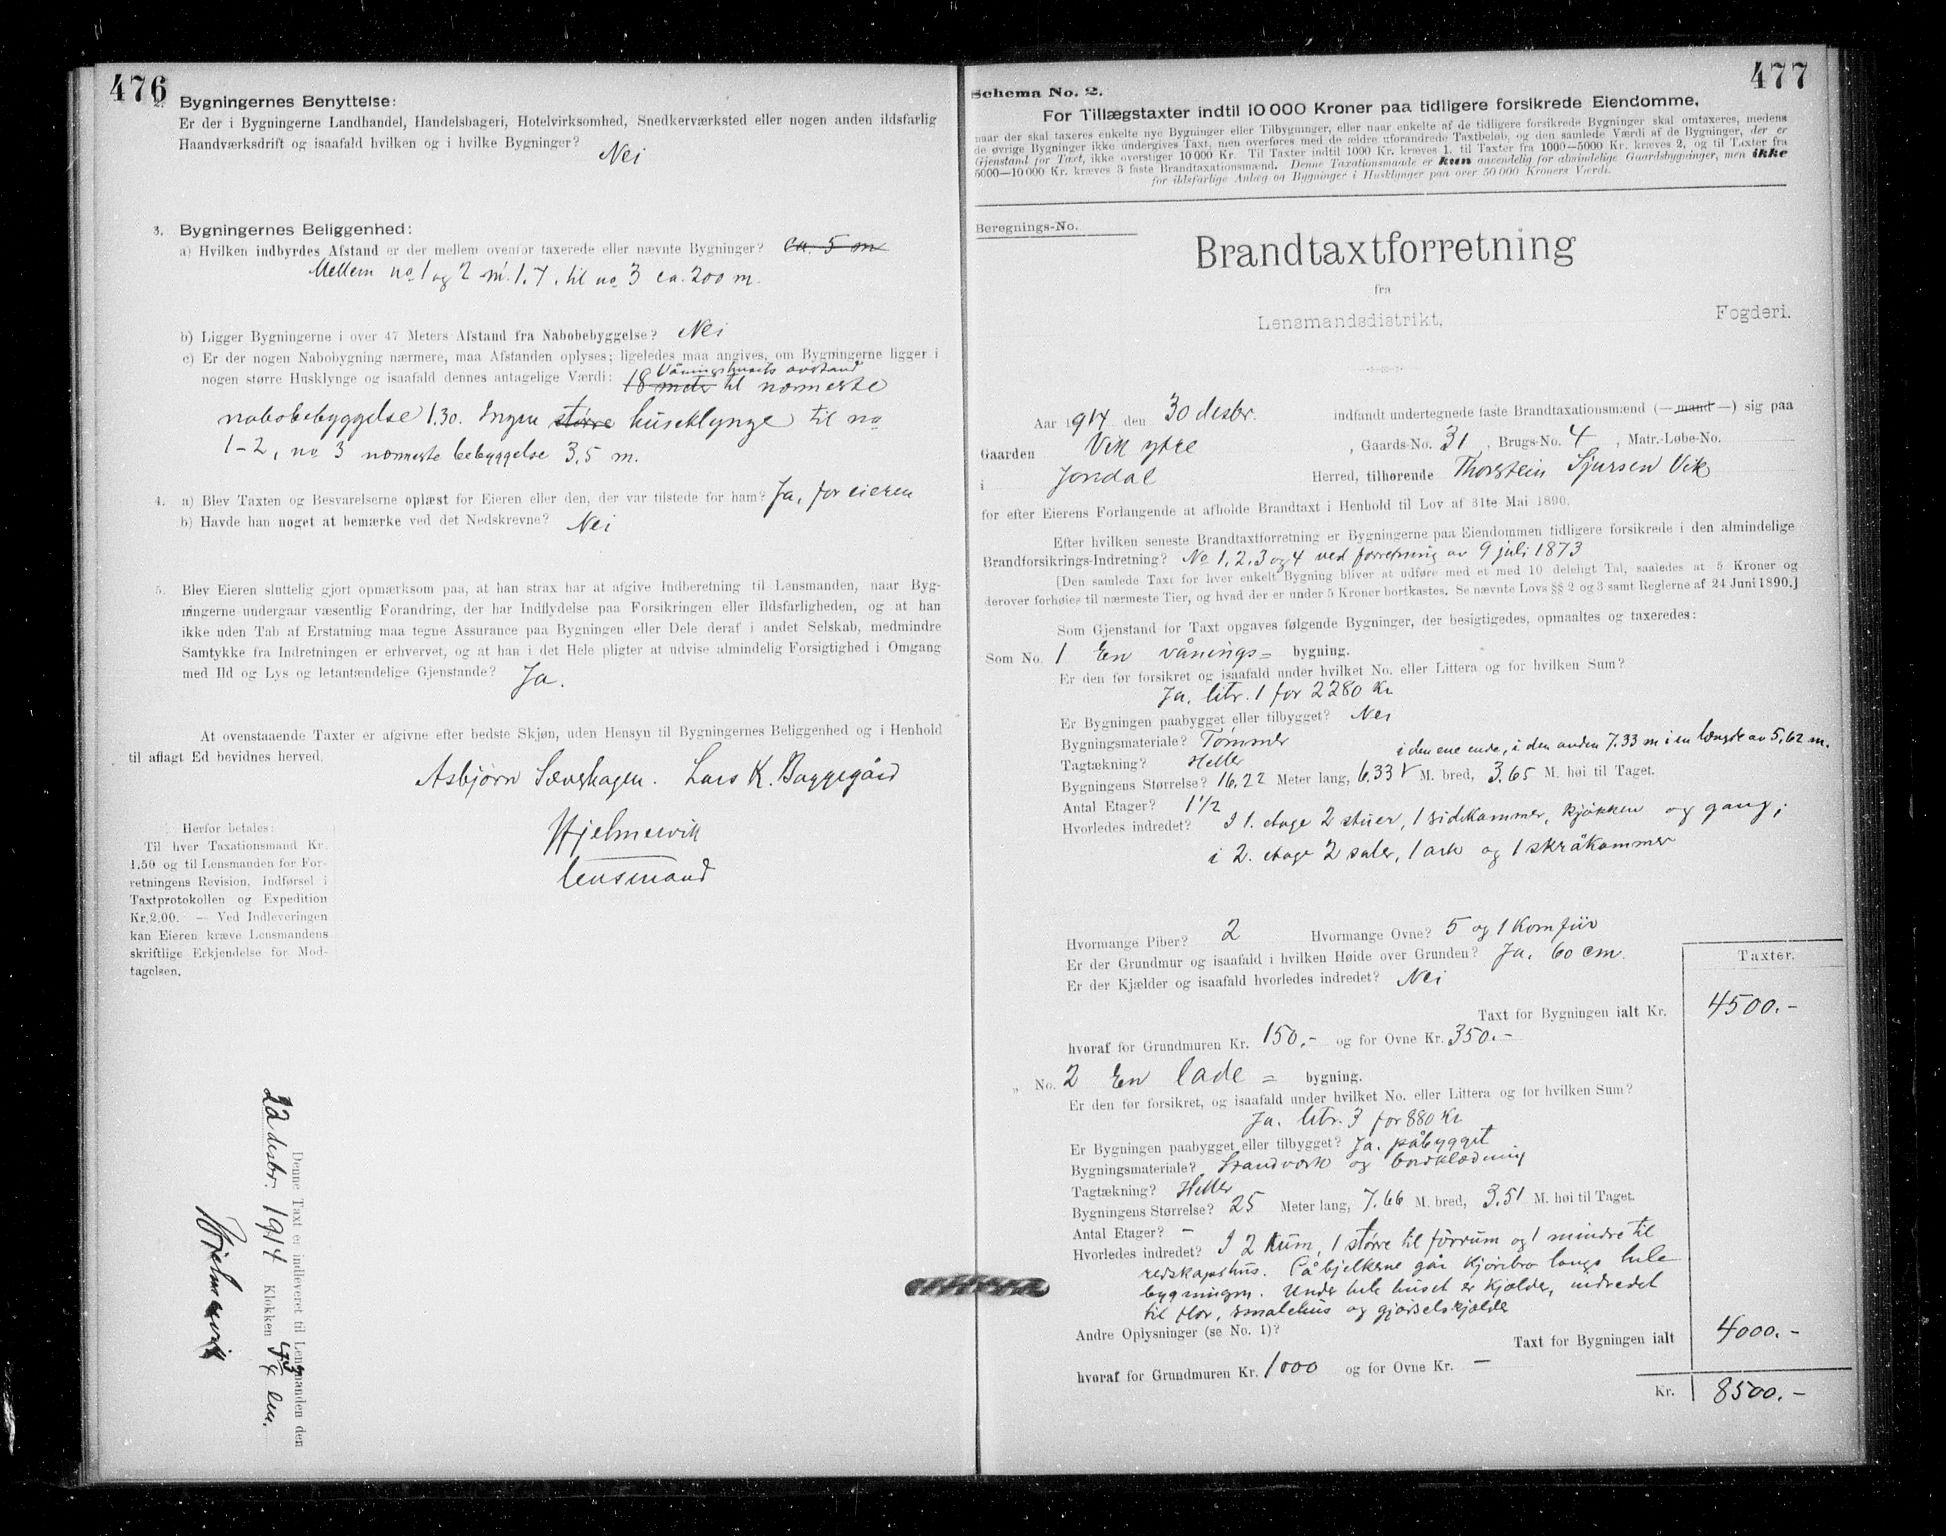 476
2. Bygningernes Benyttelse:
Er der i Bygningerne Landhandel, Handelsbageri, Hotelvirksomhed, Snedkerværksted eller nogen anden ildsfarlig
Haandværksdrift og isaafald hvilken og i hvilke Bygninger?
Nei
3. Bygningernes Beliggenhed:
a) Hvilken indbyrdes Afstand er der mellem ovenfor taxerede eller nævnte Bygninger? ca. 5 m
Mellem no 1 og 2 m. 1,7, til no 3 ca. 200 m.
b) Ligger Bygningerne i over 47 Meters Afstand fra Nabobebyggelse? Nei
c) Er der nogen Nabobygning nærmere, maa Afstanden oplyses; ligeledes maa angives, om Bygningerne ligger i
Våningshusets avstand
nogen større Husklynge og isaafald dennes antagelige Værdi: 18 meter til nærmeste
nabobebyggelse 1.30. Ingen større huseklynge til no
1-2, no 3 nærmeste bebyggelse 3,5 m.
4. a) Blev Taxten og Besvarelserne oplæst for Eieren eller den, der var tilstede for ham? Ja, for eieren
b) Havde han noget at bemærke ved det Nedskrevne? Nei
5. Blev Eieren sluttelig gjort opmærksom paa, at han strax har at afgive Indberetning til Lensmanden, naar Byg-
ningerne undergaar væsentlig Forandring, der har Indflydelse paa Forsikringen eller Ildsfarligheden, og at han
ikke uden Tab af Erstatning maa tegne Assurance paa Bygningen eller Dele deraf i andet Selskab, medmindre
Samtykke fra Indretningen er erhvervet, og at han i det Hele pligter at udvise almindelig Forsigtighed i Omgang
med Ild og Lys og letantændelige Gjenstande? Ja.
At ovenstaaende Taxter er afgivne efter bedste Skjøn, uden Hensyn til Bygningernes Beliggenhed og i Henhold
til aflagt Ed bevidnes herved.
Asbjørn Sævshagen. Lars K. Baggegård
Hjelmervik
lensmand
Herfor betales:
Til hver Taxationsmand Kr.
1.50 og til Lensmanden for For-
retningens Revision, Indførsel i
Taxtprotokollen og Expedition
Kr. 2.00. — Ved Indleveringen
kan Eieren kræve Lensmandens
skriftlige Erkjendelse for Mod-
tagelsen.
Denne Taxt er indleveret til Lensmanden den
22 desbr. 1914 Klokken
Hjelmervik
477
Schema No. 2.
For Tillægstaxter indtil 10 000 Kroner paa tidligere forsikrede Eiendomme,
naar der skal taxeres enkelte nye Bygninger eller Tilbygninger, eller naar enkelte af de tidligere forsikrede Bygninger skal omtaxeres, medens
de øvrige Bygninger ikke undergives Taxt, men overføres med de ældre uforandrede Taxtbeløb, og den samlede Værdi af de Bygninger, der er
Gjenstand for Taxt, ikke overstiger 10 000 Kr. Til Taxter indtil 1000 Kr. kræves 1, til Taxter fra 1000—5000 Kr. kræves 2, og til Taxter fra
5000—10 000 Kr. kræves 3 faste Brandtaxationsmænd. Denne Taxationsmaade er kun anvendelig for almindelige Gaardsbygninger, men ikke
for ildsfarlige Anlæg og Bygninger i Husklynger paa over 50 000 Kroners Værdi.
Beregnings-No.
Brandtaxtforretning
fra
Lensmandsdistrikt, Fogderi.
Aar 1914 den 30 desbr. indfandt undertegnede faste Brandtaxationsmænd (—mand—) sig paa
Gaarden Vik ytre, Gaards-No. 31, Brugs-No. 4, Matr.-Løbe-No.
i Jondal Herred, tilhørende Thorstein Sjursen Vik
for efter Eierens Forlangende at afholde Brandtaxt i Henhold til Lov af 31te Mai 1890.
Efter hvilken seneste Brandtaxtforretning er Bygningerne paa Eiendommen tidligere forsikrede i den almindelige
Brandforsikrings-Indretning? No 1, 2, 3 og 4 ved forretning av 9 juli 1873
[Den samlede Taxt for hver enkelt Bygning bliver at udføre med et med 10 deleligt Tal, saaledes at 5 Kroner og
derover forhøies til nærmeste Tier, og hvad der er under 5 Kroner bortkastes. Se nævnte Lovs §§ 2 og 3 samt Reglerne af 24 Juni 1890.]
Som Gjenstand for Taxt opgaves følgende Bygninger, der besigtigedes, opmaaltes og taxeredes:
Som No. 1 En vånings= bygning.
Er den før forsikret og isaafald under hvilket No. eller Littera og for hvilken Sum?
Ja, litr. 1 for 2280 Kr
Er Bygningen paabygget eller tilbygget? Nei
Bygningsmateriale? Tømmer
i den ene ende, i den anden 7.33 m i en længde av 5,62 m.
Tagtækning? Heller
Bygningens Størrelse? 16,22 Meter lang, 6,33 M. bred, 3,65 M. høi til Taget.
Antal Etager? 1 1/2
Hvorledes indredet? I 1. etage 2 stuer, 1 sidekammer, kjøkken og gang;
i 2. etage 2 saler, 1 ark og 1 skråkammer
Hvormange Piber? 2 Hvormange Ovne? 5 og 1 komfur
Er der Grundmur og isaafald i hvilken Høide over Grunden? Ja, 60 cm.
Er der Kjælder og isaafald hvorledes indredet? Nei
Taxter.
Taxt for Bygningen ialt Kr. 4500.-
hvoraf for Grundmuren Kr. 150.- og for Ovne Kr. 350.-
„ No. 2 En lade= bygning.
Er den før forsikret, og isaafald under hvilket No. eller Littera og for hvilken Sum?
Ja. litr. 3 for 880 Kr
Er Bygningen paabygget eller tilbygget? Ja. påbygget
Bygningsmateriale? Standverk og bordklædning
Tagtækning? Heller
Bygningens Størrelse? 25 Meter lang, 7.66 M. bred, 3.51 M. høi til Taget.
Antal Etager? —
Hvorledes indredet? I 2 rum, 1 større til fôrrum og 1 mindre til
redskapshus. På bjelkerne går kjørebro langs hele
bygningen. Under hele huset er kjælder, indredet
til flor, smalehus og gjødselskjælder
Andre Oplysninger (se No. 1)?
Taxt for Bygningen ialt 4000.-
hvoraf for Grundmuren Kr. 1000 og for Ovne Kr. —
Kr. 8500.-